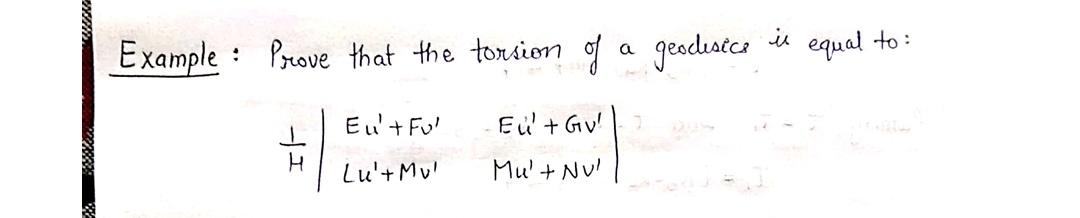 Example : Prove that the torsion of a geodesics is equal to :
1/H | Eu' + Fv' Eu' + Gv' |
| Lu' + Mv' Mu' + Nv' |